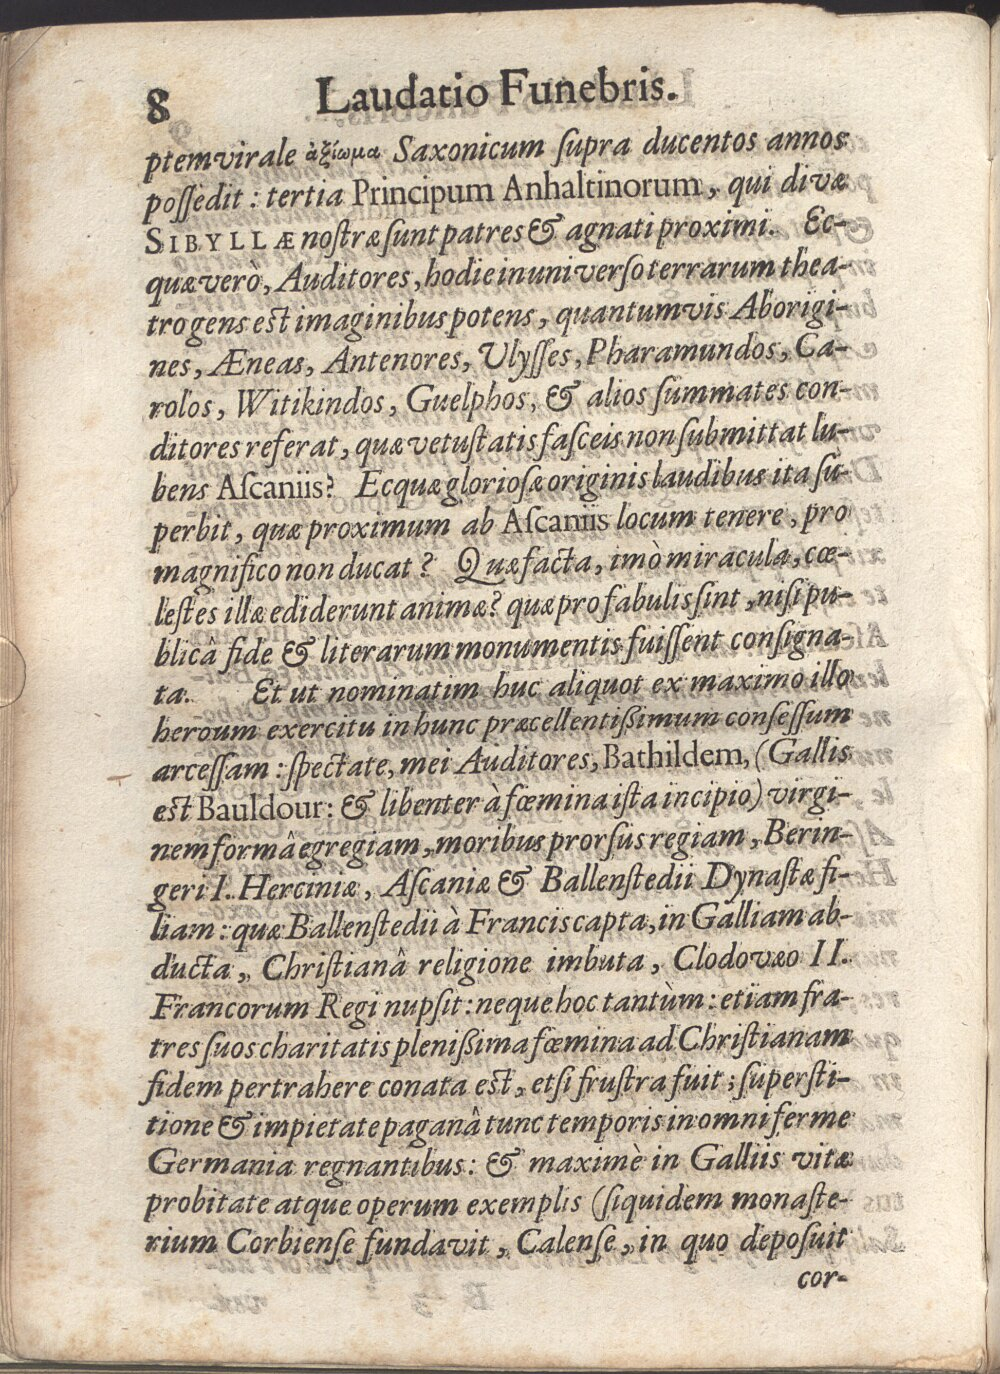 8 Laudatio Funebris.
ptemvirale ἀξίωμα Saxonicum ſupra ducentos annos
poſſedit: tertia Principum Anhaltinorum, qui divæ
SIBYLLÆ noſtræ ſunt patres & agnati proximi. Ec-
quæ verò, Auditores, hodie in univerſo terrarum thea-
tro gens est imaginibus potens, quantumvis Aborigi-
nes, Æneas, Antenores, Ulyſſes, Pharamundos, Ca-
rolos, Witikindos, Guelphos, & alios ſummates con-
ditores referat, quæ vetuſtatis faſceis non ſubmittat lu-
bens Aſcaniis? Ecquæ glorioſæ originis laudibus ita ſu-
perbit, quæ proximum ab Aſcaniis locum tenere, pro
magnifico non ducat? Quæ facta, imò miracula, cœ-
lestes illæ ediderunt animæ? quæ pro fabulis ſint, niſi pu-
blicâ fide & literarum monumentis fuiſſent conſigna-
ta. Et ut nominatim huc aliquot ex maximo illo
heroum exercitu in hunc præcellentißimum conſeſſum
arceſſam: ſpectate, mei Auditores, Bathildem, (Gallis
est Bauldour: & libenter à fœmina iſta incipio) virgi-
nem formâ egregiam, moribus prorſus regiam, Berin-
geri I. Herciniæ, Aſcaniæ & Ballenſtedii Dynaſtæ fi-
liam: quæ Ballenſtedii à Francis capta, in Galliam ab-
ducta, Chriſtianâ religione imbuta, Clodovæo II.
Francorum Regi nupſit: neque hoc tantùm: etiam fra-
tres ſuos charitatis pleniſſima fœmina ad Chriſtianam
fidem pertrahere conata est, etſi fruſtra fuit; ſuperſti-
tione & impietate paganâ tunc temporis in omni ferme
Germania regnantibus: & maximè in Galliis vitæ
probitate atque operum exemplis (ſiquidem monaſte-
rium Corbienſe fundavit, Calenſe, in quo depoſuit
cor-